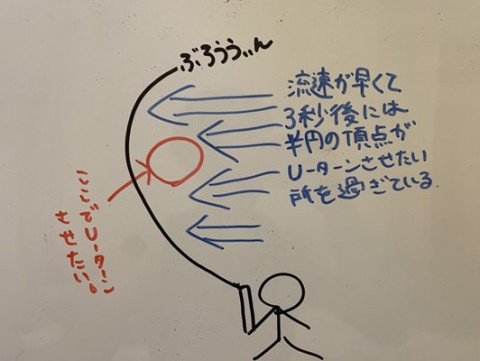 ぶろううぃん
流速が早くて
3秒後には
半円の頂点が
Uーターンさせたい
所を過ぎている.
ここでUーターン
させたい。